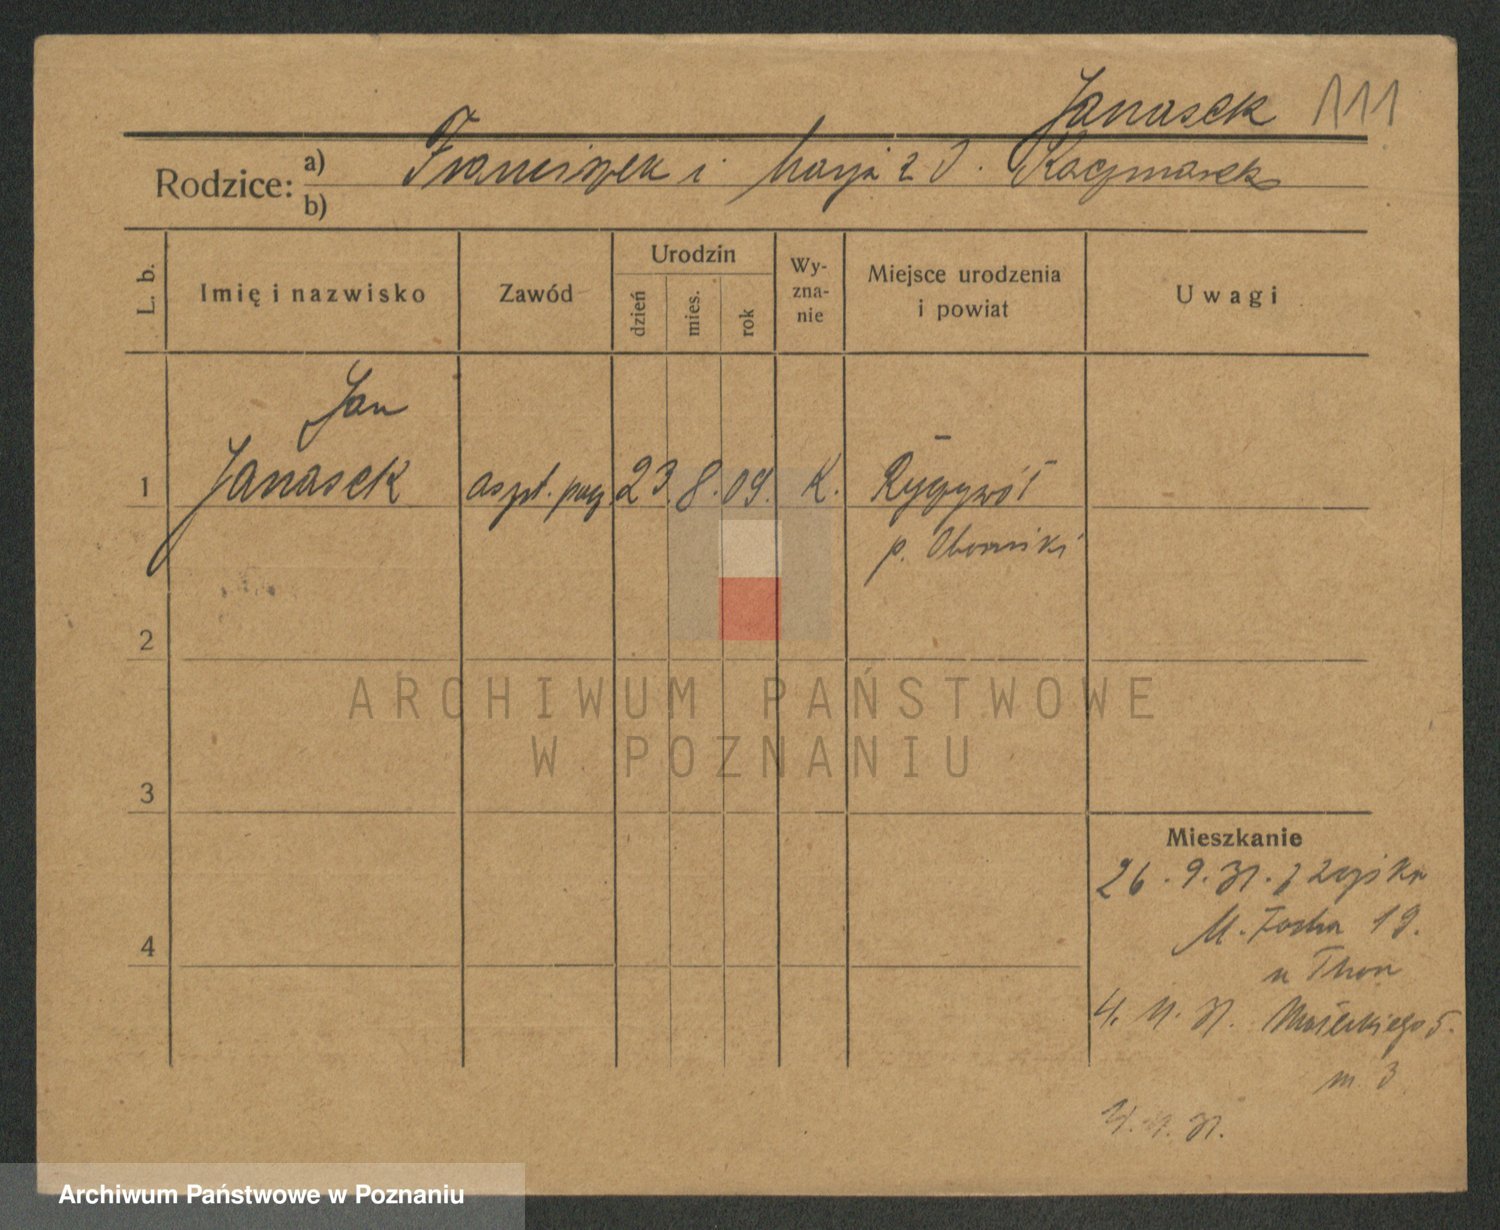 Janasek 111
Rodzice: a) Franciszek i Marja z d. Kaczmarek
b)
L. b.
Imię i nazwisko
Zawód
Urodzin
dzień
mies.
rok
Wy-
zna-
nie
Miejsce urodzenia
i powiat
Uwagi
Jan
1 Janasek 23. 8. 09. K. Ryczywół
p. Oborniki
2
3
4
ARCHIWUM PAŃSTWOWE
W POZNANIU
Mieszkanie
26. 9. 31. z
M. Focha 19.
u Thon
4. 11. 31. 5.
m 3
4. 11. 31.
Archiwum Państwowe w Poznaniu